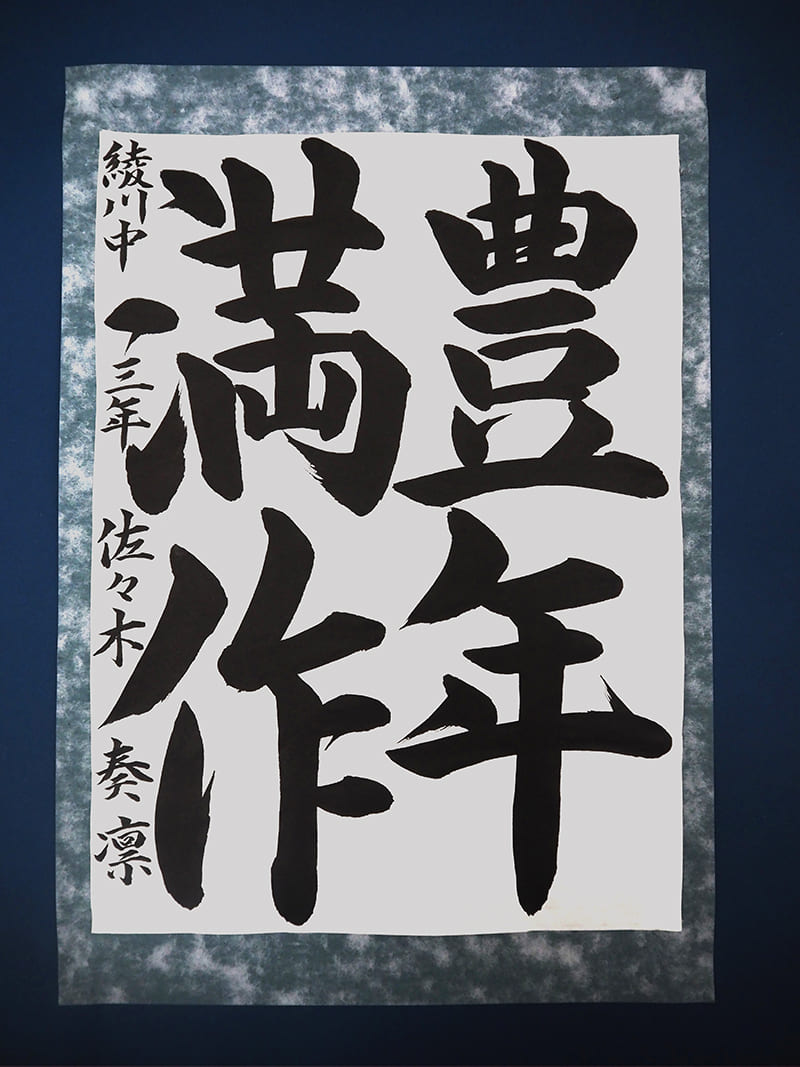 豊年
満作
綾川中 三年 佐々木 奏凛